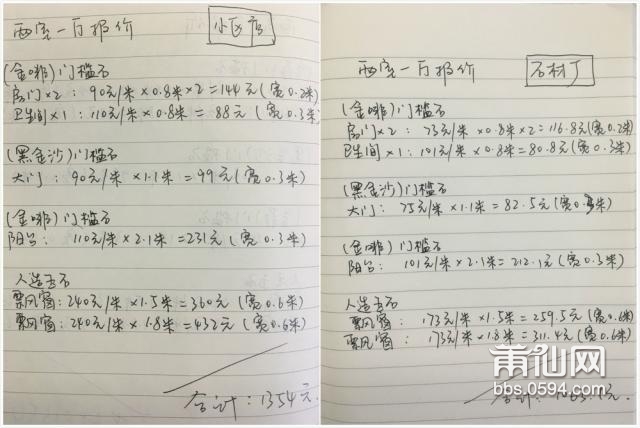 两室一厅报价 小区店
(金啡)门槛石
房门×2：90元/米×0.8米×2=144元(宽0.2米)
卫生间×1：110元/米×0.8米=88元(宽0.3米)
(黑金沙)门槛石
大门：90元/米×1.1米=99元(宽0.3米)
(金啡)门槛石
阳台：110元/米×2.1米=231元(宽0.3米)
人造石
飘窗：240元/米×1.5米=360元(宽0.6米)
飘窗：240元/米×1.8米=432元(宽0.6米)
合计：1354元.
两室一厅报价 石材厂
(金啡)门槛石
房门×2：73元/米×0.8米×2=116.8元(宽0.2米)
卫生间×1：101元/米×0.8米=80.8元(宽0.3米)
(黑金沙)门槛石
大门：75元/米×1.1米=82.5元(宽0.3米)
(金啡)门槛石
阳台：101元/米×2.1米=212.1元(宽0.3米)
人造石
飘窗：173元/米×1.5米=259.5元(宽0.6米)
飘窗：173元/米×1.8米=311.4元(宽0.6米)
合计：
莆仙网
bbs.0594.com